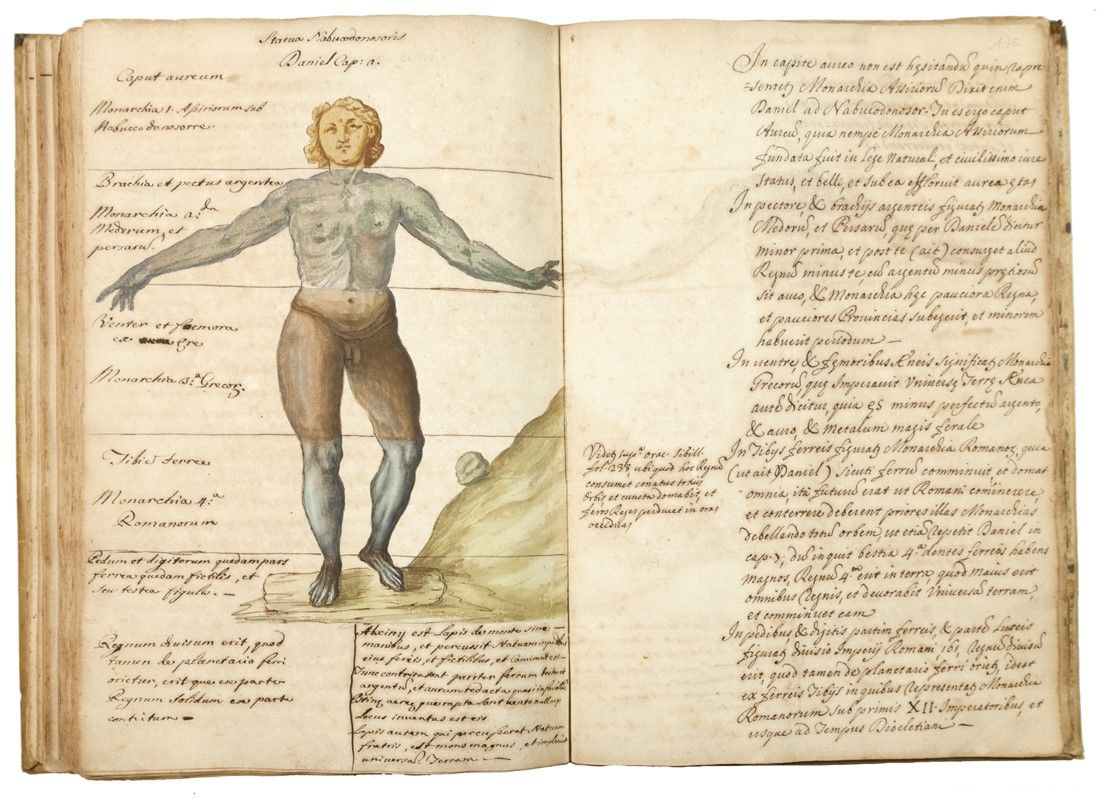 Statua Nabucodonosoris
Daniel Cap: 2.
Caput aureum
Monarchia 1 Assiriorum sub
Nabuccodonosorre.
Brachia et pectus argentea
Monarchia 2.da
Medorum, et
persarum.
Venter et foemora
ex Ere
Monarchia 3.a Grecor.
Tibie ferree
Monarchia 4.a
Romanorum
Pedum et digitorum quedam pars
ferrea quedam fictilis, et
seu testea figulis. —
Regnum diuisum erit, quod
tamen de plantario ferri
orietur, erit que ex parte
Regnum solidum ex parte
contritum —
est lapis de monte sine
manibus, et percussit statuam
eius ferreis, et fictilibus, et
Tunc contrita sunt pariter ferrum testa
argentum, et aurum redacta quasi in
que rapta sunt vento nullusq
locus inventus est eis
Lapis autem qui percusserat statuam
est mons magnus, et implevit
universam Terram —
170
In capite aureo non est hesitandū quin repre
sentetʒ Monarchia Assiriorū Dixit enim
Daniel ad Nabucodonosor. Tu es ergo caput
Aureū, quia nempe Monarchia Assiriorum
fundata fuit in lege Natural, et civilissimo iure
status, et belli, et sub ea effloruit aurea ętas
In pectore & brachijs argenteis figuratʒ Monarchia
Medorū, et Persarū, quę per Danielē dicitur
minor prima, et post te (ait) consurget aliud
Regnū minus te, eū argentū minus prętiosū
sit auro, & Monarchia hęc pauciora Regna,
et pauciores Provincias subegerit, et minorem
habuerit periodum —
In ventre, & fęmoribus Æneis significatʒ Monarchia
Grecorū quę Imperavit Universę Terrę Ænea
autē dicitur, quia ęs minus perfectū argento,
& auro, & metalum magis ferale
In Tibijs ferreis figuratʒ Monarchia Romanoʒ, quia
(ut ait Daniel) Sicuti ferrū comminuit, et domat
omnia, itā futurū erat ut Romani cominerere
et conterrere deberent priores illas Monarchias
debellando totū orbem, ut etiā repetit Daniel in
cap. 7, dū inquit bestia 4.a dentes ferreos habens
magnos, Regnū 4.um erit in terra, quod maius erit
omnibus Regnis, et devorabit Universā terram,
et comminuet eam
In pedibus & digitis partim ferreis, & partī luteis
figuratʒ divisio Imperij Romani ibi, Regnū divisū
erit, quod tamen de plantario ferri orietʒ, idest
ex ferreis Tibijs in quibus representatʒ Monarchia
Romanorum sub primis XII Imperatoribus, et
usque ad Tempus Diocletiani —
Videtʒ orac. Sibill.
fol 238 ubi quod hoc Regnū
consumet conatus totius
Orbis et cuncta domabit, et
Reges perducet in oras
occiduas